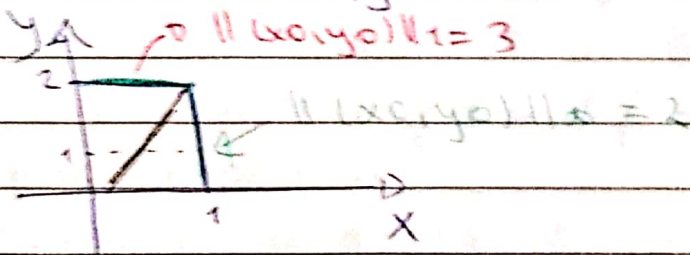 y
||(x0,y0)||1 = 3
2
||(x0,y0)||∞ = 2
1
1
X